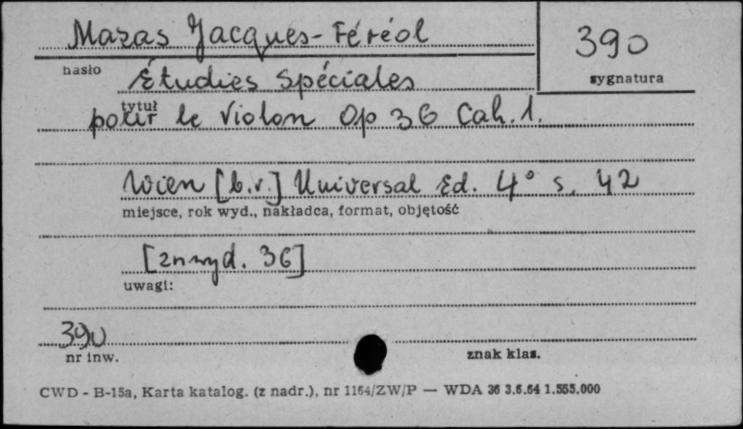 Mazas Jacques-Féréol
390
hasło
sygnatura
Études Spéciales
tytuł
pour le Violon Op 36 Cah. 1.
Wien [b.r.] Universal Ed. 4° s. 42
miejsce, rok wyd., nakładca, format, objętość
[zn wyd. 36]
uwagi:
390
nr inw.
znak klas.
CWD - B-15a, Karta katalog. (z nadr.), nr 1164/ZW/P — WDA 36 3.6.64 1.555.000